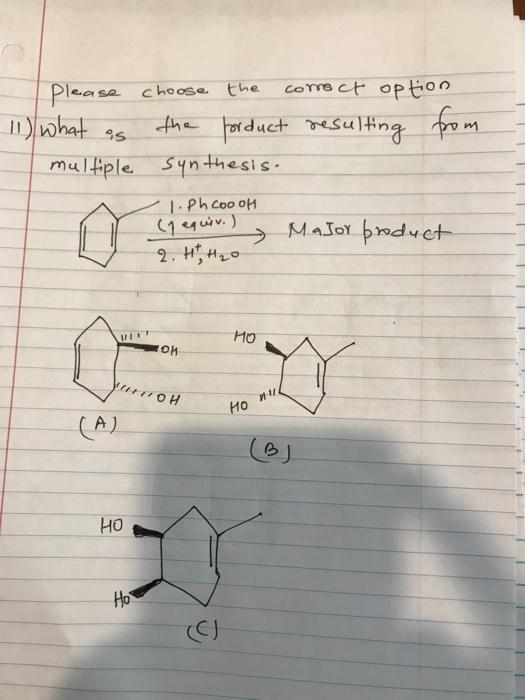 Please choose the correct option
11) What is the product resulting from
multiple synthesis.
1. PhCOOOH
(1 equiv.)
2. H⁺, H₂O
Major product
OH
OH
(A)
HO
HO
(B)
HO
HO
(C)